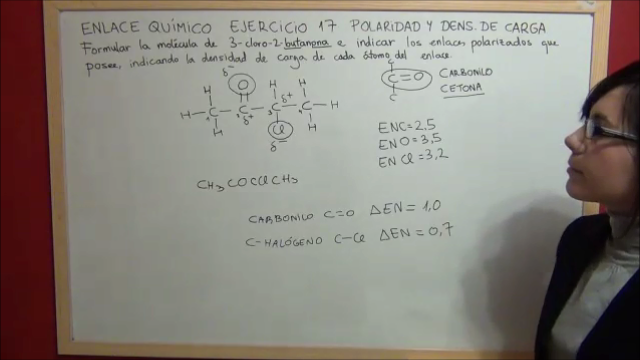 ENLACE QUÍMICO EJERCICIO 17 POLARIDAD Y DENS. DE CARGA
Formular la molécula de 3-cloro-2-butanona e indicar los enlaces polarizados que
posee, indicando la densidad de carga de cada átomo del enlace.
δ-
O
H H H
H - C - C - C - C - H
1 2 3 4
δ+ δ+
H Cl H
δ-
C
C=O
C
CARBONILO
CETONA
ENC=2,5
ENO=3,5
ENCl=3,2
CH3COCClCH3
CARBONILO C=O ΔEN=1,0
C-HALÓGENO C-Cl ΔEN=0,7